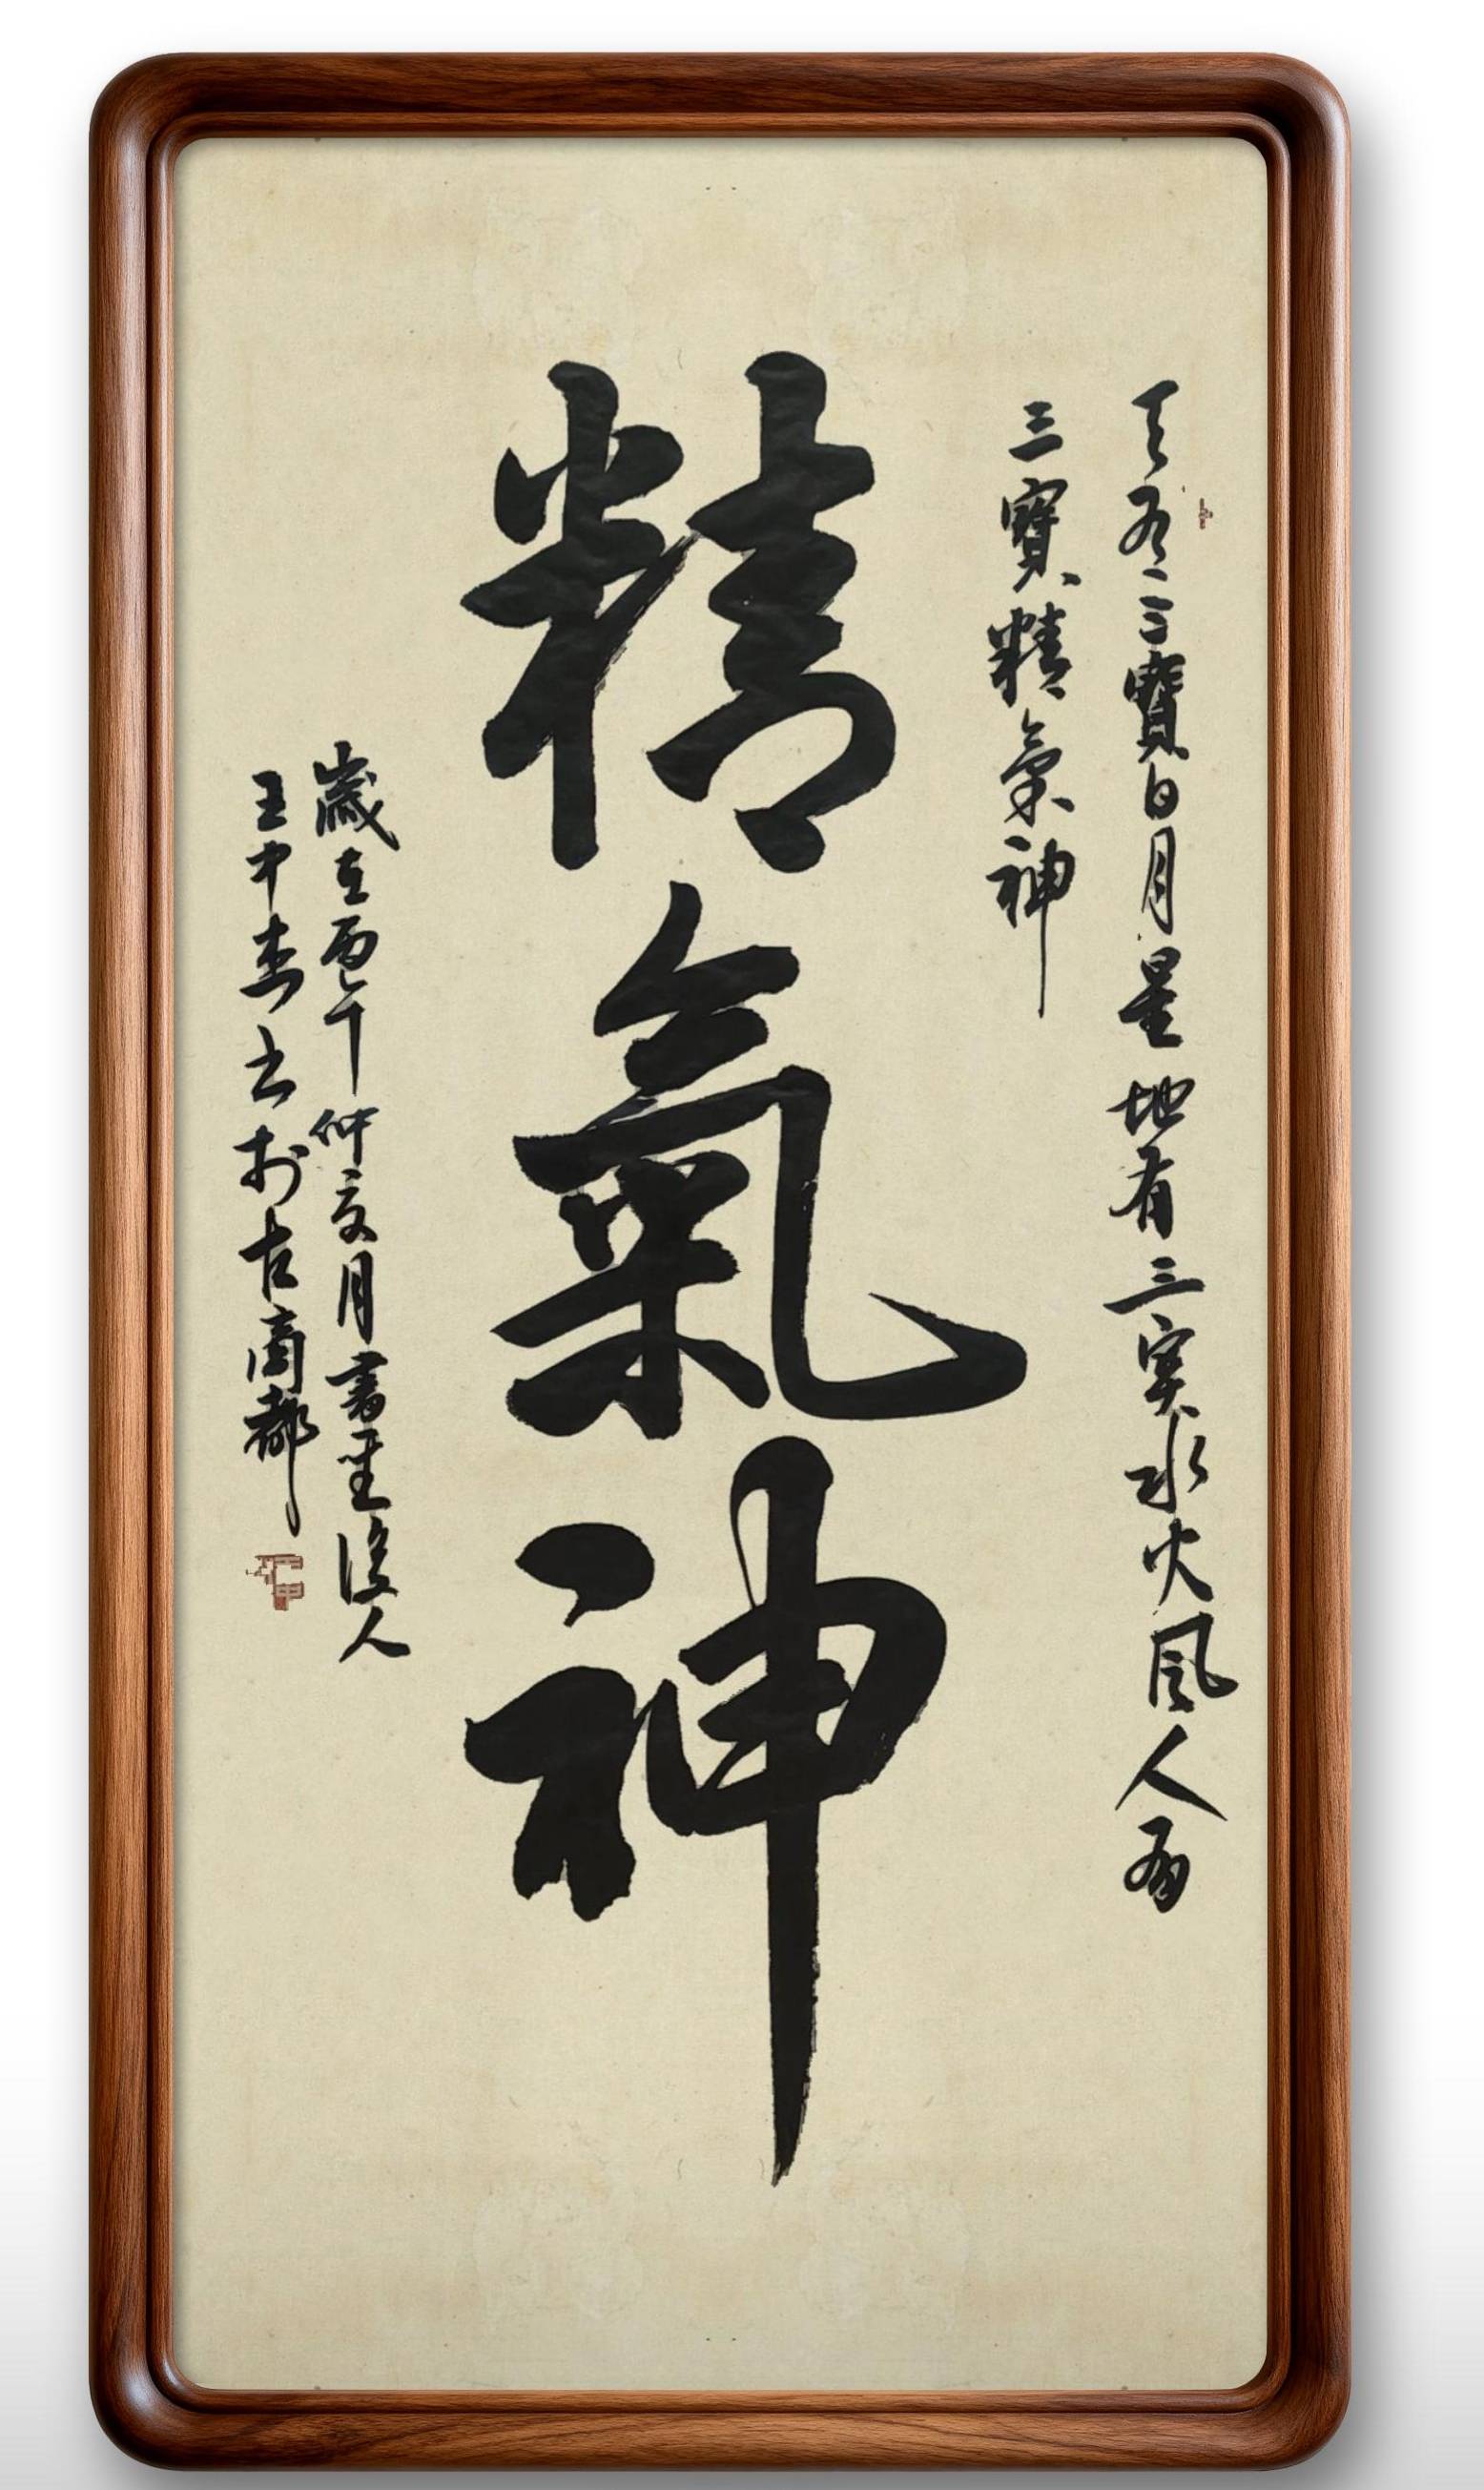 天有三寶日月星地有三宝水火风人有
三寶精氣神
精氣神
歲在丙午仲夏月書聖後人
王中杰书於古商都